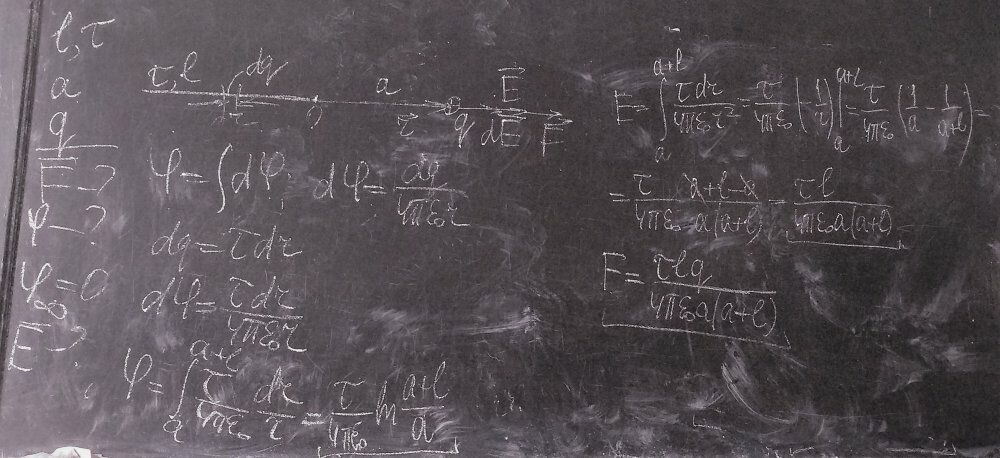 l, τ
a
q
E⃗ - ?
φ - ?
φ∞ = 0
E⃗ - ?
τ, l dq a E⃗
dr r⃗ q dE⃗ F⃗
φ = ∫ dφ; dφ = dq / 4πε₀r
dq = τ dr
dφ = τ dr / 4πε₀r
φ = ∫ₐᵃ⁺ˡ τ / 4πε₀ dr / r = τ / 4πε₀ ln (a+l) / a
E = ∫ₐᵃ⁺ˡ τ dr / 4πε₀r² = τ / 4πε₀ (-1/r) |ₐᵃ⁺ˡ = τ / 4πε₀ (1/a - 1/(a+l)) =
= τ / 4πε₀ (a+l-a) / a(a+l) = τl / 4πε₀a(a+l)
F = τlq / 4πε₀a(a+l)